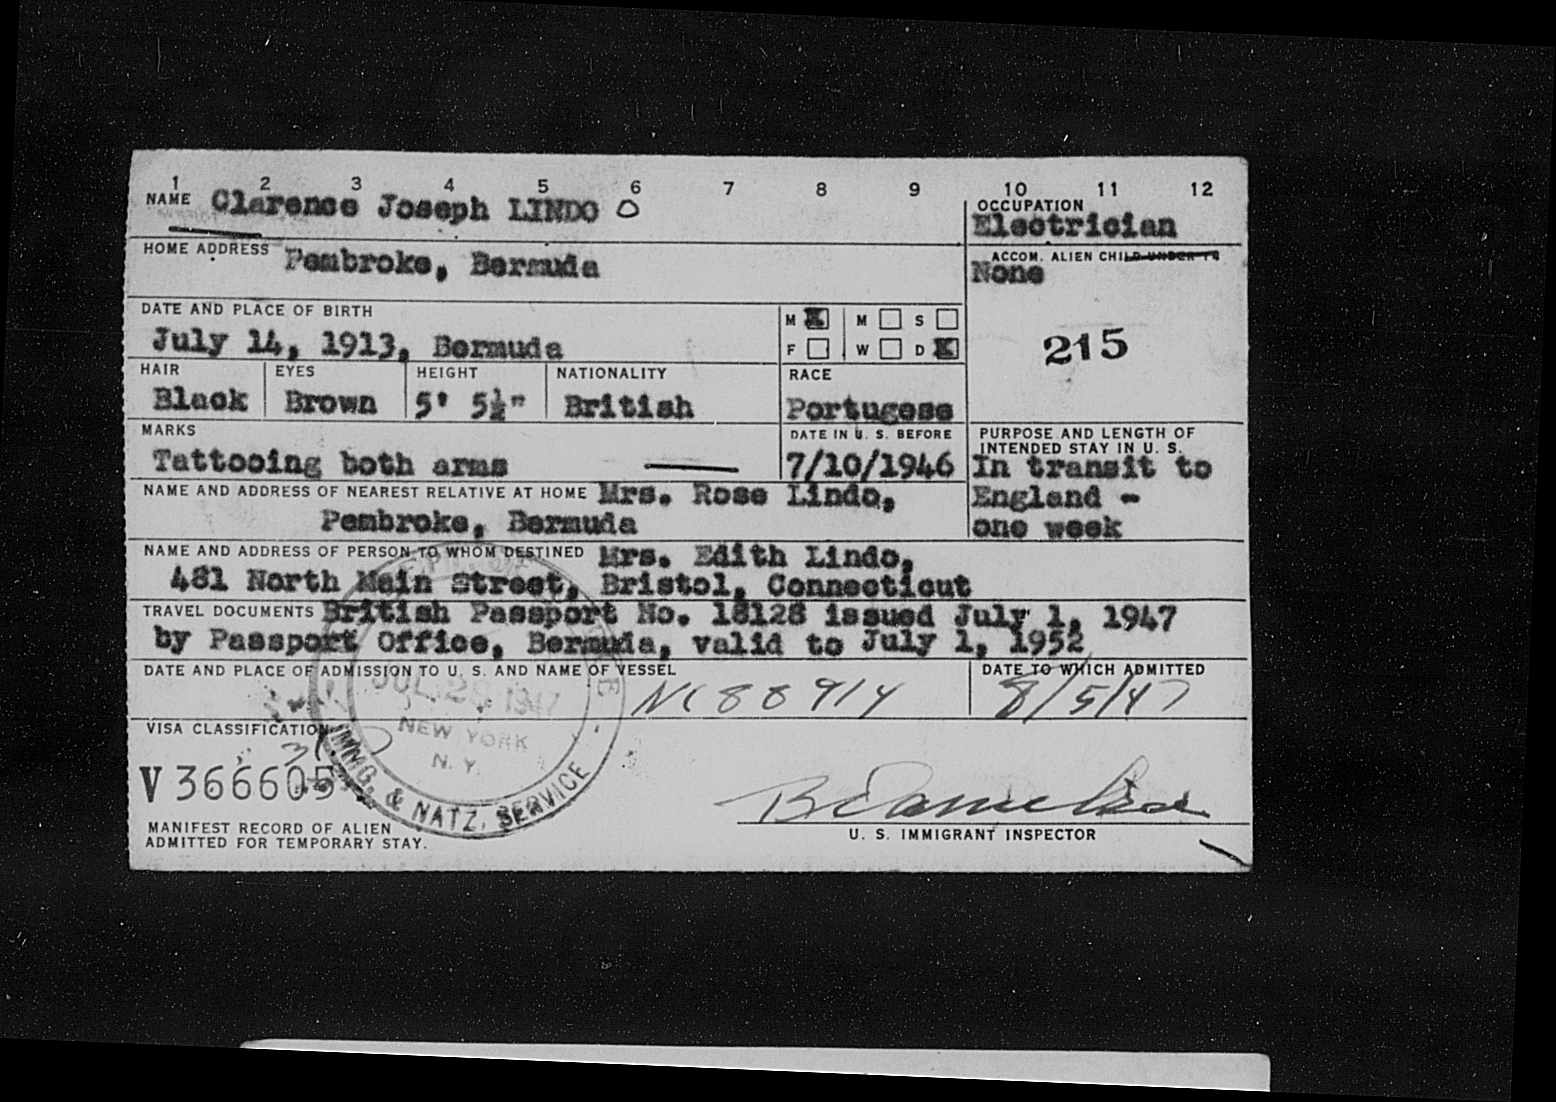 1 2 3 4 5 6 7 8 9 10 11 12
NAME Clarence Joseph LINDO O
OCCUPATION
Electrician
HOME ADDRESS Pembroke, Bermuda
ACCOM. ALIEN CHILD UNDER 14
None
DATE AND PLACE OF BIRTH
July 14, 1913, Bermuda
M X M S
F W D X
215
HAIR EYES HEIGHT NATIONALITY RACE
Black Brown 5' 5½" British Portugese
MARKS
Tattooing both arms
DATE IN U. S. BEFORE
7/10/1946
PURPOSE AND LENGTH OF
INTENDED STAY IN U. S.
In transit to
England -
one week
NAME AND ADDRESS OF NEAREST RELATIVE AT HOME Mrs. Rose Lindo,
Pembroke, Bermuda
NAME AND ADDRESS OF PERSON TO WHOM DESTINED Mrs. Edith Lindo,
481 North Main Street, Bristol, Connecticut
TRAVEL DOCUMENTS British Passport No. 18128 issued July 1, 1947
by Passport Office, Bermuda, valid to July 1, 1952
DATE AND PLACE OF ADMISSION TO U. S. AND NAME OF VESSEL
NC 88914
DATE TO WHICH ADMITTED
8/5/47
JUL 28 1947
NEW YORK
N. Y.
IMMG. & NATZ. SERVICE
VISA CLASSIFICATION
V 366605
MANIFEST RECORD OF ALIEN
ADMITTED FOR TEMPORARY STAY.
U. S. IMMIGRANT INSPECTOR